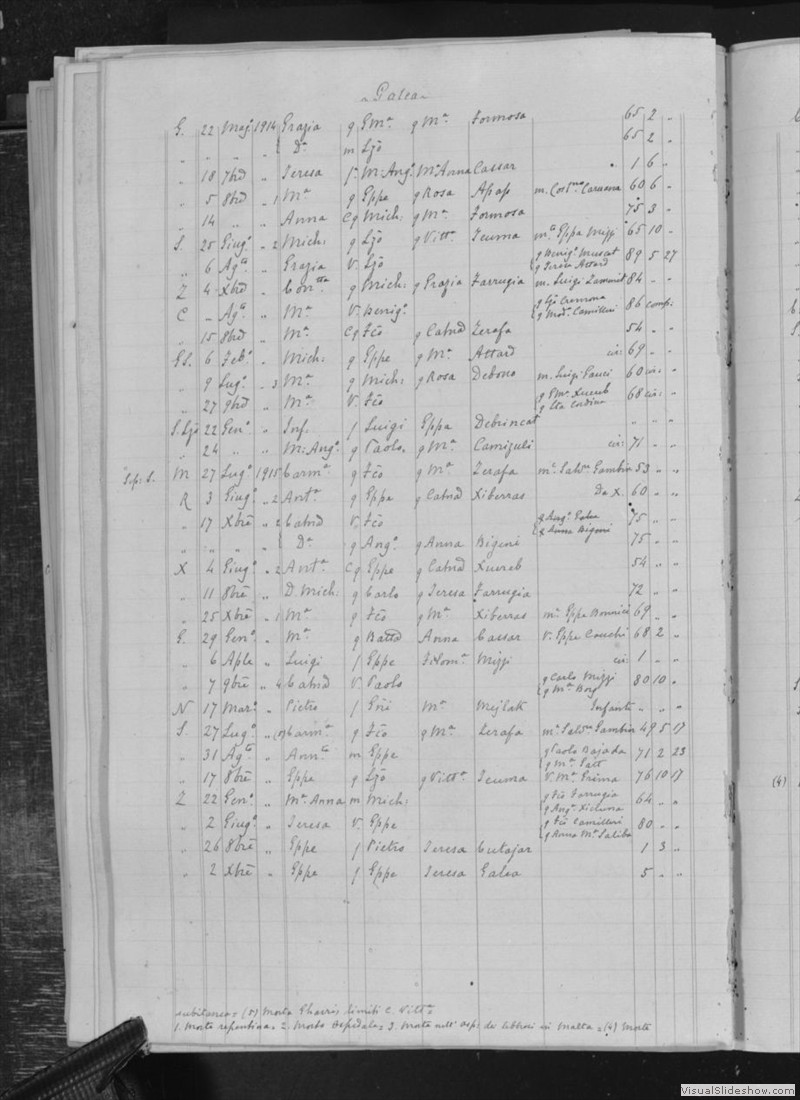 „ Galea „
G. 22 Magº 1914 Grazia g Gmª. g Mª. Formosa 65 2 „
„ „ „ „ { Dª m Ljō 65 2 „
„ 18 7bd „ Teresa f. M: Angº Mª Anna Cassar 1 6 „
„ 5 8bd „ 1 Mª g Eppe g Rosa Apap m. Cosmº Caruana 60 6 „
„ 14 „ „ Anna Cg Mich: g Mª. Formosa 75 3 „
S. 25 Giugº „ 2 Mich: g Ljō g Vittª. Tcuma mª Eppa Mizzi 65 10 „
„ 6 Agtº „ Grazia V. Ljō { g Benigº Muscat g Teresa Attard 89 5 27
Z 4 Xbd „ Conttª g Mich: g Grazia Farrugia m. Luigi Zammit 84 „ „
C – Agtº „ Mª V. Benigº { g Giō Cremona g Madª Camilleri 86 comp:
„ 15 8bd „ Mª. Cg Fcō g Catnd Zerafa 54 „ „
GS. 6 Febº „ Mich: g Eppe g Mª. Attard cir: 69 „ „
„ 9 Lugº „ 3 Mª g Mich: g Rosa Debono m. Luigi Pauci 60 cir: „
„ 27 9bd „ Mª V. Fcō { g Pmº. Xuereb g Ita Cordina 68 cir: „
S. Ljō 22 Genº „ Inf. f Luigi Eppa Debrincat „ „ „
„ 24 „ „ M: Angº. g Paolo. g Mª. Camizuli cir: 71 „ „
Sep: S. M 27 Lugº 1915 Carmª g Fcō g Mª. Zerafa mª. Salvº Gambin 53 „ „
R 3 Giugº „ 2 Antª g Eppe g Catnd Xiberras Da X. 60 „ „
„ 17 Xbrē „ 2 Catnd V. Fcō { g Angº. Galea g Anna Bigeni 75 „ „
„ „ „ „ { Dª g Angº. g Anna Bigeni 75 „ „
X 4 Giugº „ 2 Antª Cg Eppe g Catnd Xuereb 54 „ „
„ 11 8brē „ D. Mich: g Carlo g Teresa Farrugia 72 „ „
„ 25 Xbrē „ 1 Mª g Fcō g Mª. Xiberras mª. Eppa Bonnici 69 „ „
G. 29 Genº. „ Mª. g Battd Anna Cassar V. Eppe Cauchi 68 2 „
„ 6 Aple „ Luigi f Eppe Filomª Mizzi cir: 1 „ „
„ 7 9brē „ 4 Catnd V. Paolo { g Carlo Mizzi g Mª Borg 80 10 „
N 17 Marº „ Pietro f Gñi Mª Mejlak Infanti „ „ „
S. 27 Lugº „ (5) Carmª. g Fcō g Mª Zerafa mª. Salvº Gambin 49 5 17
„ 31 Agtº „ Annª m Eppe { g Paolo Bajada g Mª Patt 71 2 23
„ 17 8brē „ Eppa g Ljō g Vittª. Tcuma V. Mª Grima 76 10 17
Z 22 Genº. „ Mª. Anna m Mich: { g Fcō Farrugia g Angº. Xicluna 64 „ „
„ 2 Giugº „ Teresa V. Eppe { g Fcō Camilleri g Anna Mª Saliba 80 „ „
„ 26 8brē „ Eppe f Pietro Teresa Cutajar 1 3 „
„ 2 Xbrē „ Eppa f Eppe Teresa Galea 5 „ „
(4)
subitanea = (5) Morta Gharri, limiti C. Vittª
1. Morte repentina = 2. Morto Ospedale = 3 Morta nell' Osp: dei lebbrosi in Malta = (4) Morte
VisualSlideshow.com